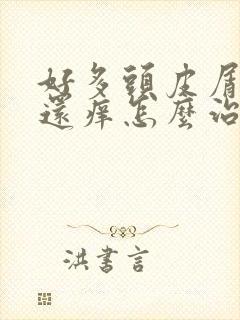 好多頭皮屑
還痒怎麼治
洪書言